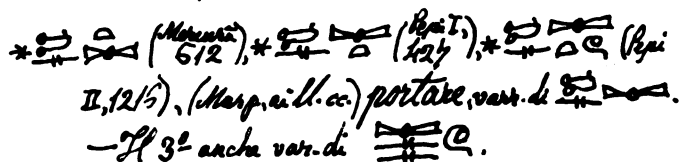 * (Merenrâ 612), * (Pepi I, 427), * (Pepi
II, 1215), (Masp., ai ll. cc.) portare, varr. di .
— Il 3º anche var. di .